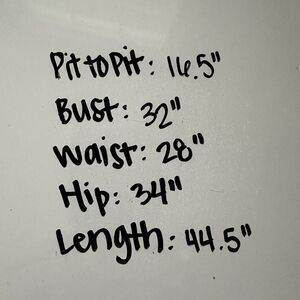 Pit to Pit: 16.5"
Bust: 32"
Waist: 28"
Hip: 34"
Length: 44.5"